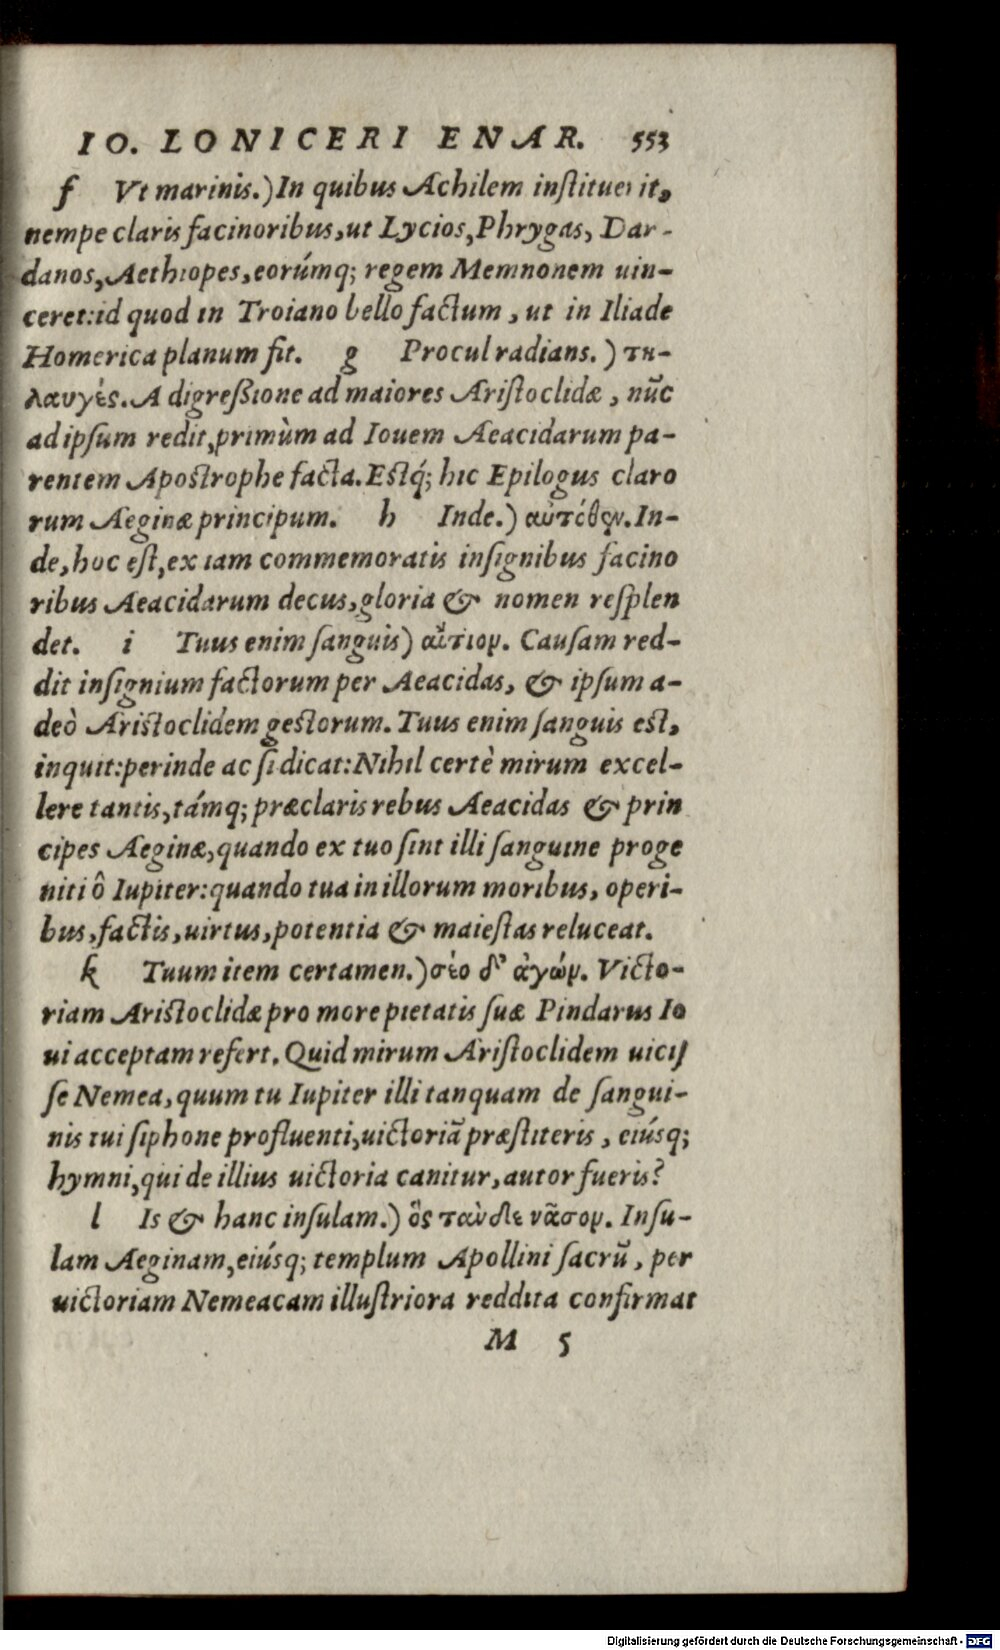 IO. LONICERI ENAR. 553
f Vt marinis.) In quibus Achilem instituerit,
nempe claris facinoribus, ut Lycios, Phrygas, Dar-
danos, Aethiopes, eorúmq; regem Memnonem uin-
ceret: id quod in Troiano bello factum, ut in Iliade
Homerica planum fit. g Procul radians.) τη-
λαυγές. A digreßione ad maiores Aristoclidæ, nūc
ad ipsum redit, primùm ad Iouem Aeacidarum pa-
rentem Apostrophe facta. Estq́; hic Epilogus claro
rum Aeginæ principum. h Inde.) αὐτόθεν. In-
de, hoc est, ex iam commemoratis insignibus facino
ribus Aeacidarum decus, gloria & nomen resplen
det. i Tuus enim sanguis) αἷτιον. Causam red-
dit insignium factorum per Aeacidas, & ipsum a-
deò Aristoclidem gestorum. Tuus enim sanguis est,
inquit: perinde ac si dicat: Nihil certè mirum excel-
lere tantis, támq; præclaris rebus Aeacidas & prin
cipes Aeginæ, quando ex tuo sint illi sanguine proge
niti ô Iupiter: quando tua in illorum moribus, operi-
bus, factis, uirtus, potentia & maiestas reluceat.
k Tuum item certamen.) σέο δ' ἀγών. Victo-
riam Aristoclidæ pro more pietatis suæ Pindarus Io
ui acceptam refert. Quid mirum Aristoclidem uicis
se Nemea, quum tu Iupiter illi tanquam de sangui-
nis tui siphone profluenti, uictoriā præstiteris, eiúsq;
hymni, qui de illius uictoria canitur, autor fueris?
l Is & hanc insulam.) ὃς τάνδε νᾶσον. Insu-
lam Aeginam, eiúsq; templum Apollini sacrū, per
uictoriam Nemeacam illustriora reddita confirmat
M 5
Digitalisierung gefördert durch die Deutsche Forschungsgemeinschaft - DFG